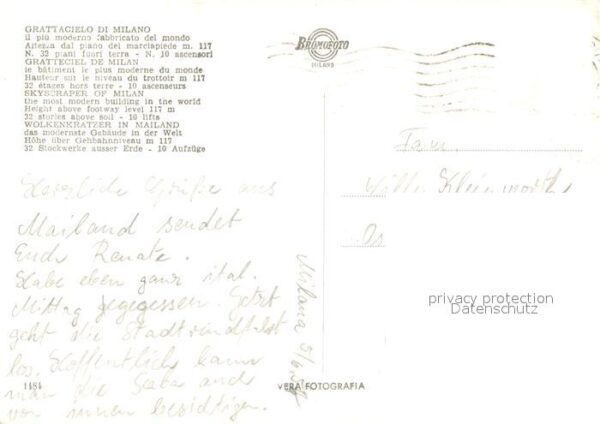 GRATTACIELO DI MILANO
il più moderno fabbricato del mondo
Altezza dal piano del marciapiede m. 117
N. 32 piani fuori terra - N. 10 ascensori
GRATTECIEL DE MILAN
le bâtiment le plus moderne du monde
Hauteur sur le niveau du trottoir m 117
32 étages hors terre - 10 ascenseurs
SKYSCRAPER OF MILAN
the most modern building in the world
Height above footway level 117 m
32 stories above soil - 10 lifts
WOLKENKRATZER IN MAILAND
das modernste Gebäude in der Welt
Höhe über Gehbahnniveau m 117
32 Stockwerke ausser Erde - 10 Aufzüge
BROMOFOTO
MILANO
Fam.
Os
privacy protection
Datenschutz
Herzliche Grüße aus
Mailand sendet
Euch Renate.
Habe eben ganz ital.
Mittag gegegessen. Jetzt
geht die Stadtrundfahrt
los. Hoffentlich kann
man die Scala auch
von innen besichtigen.
Milano
1184
VERA FOTOGRAFIA